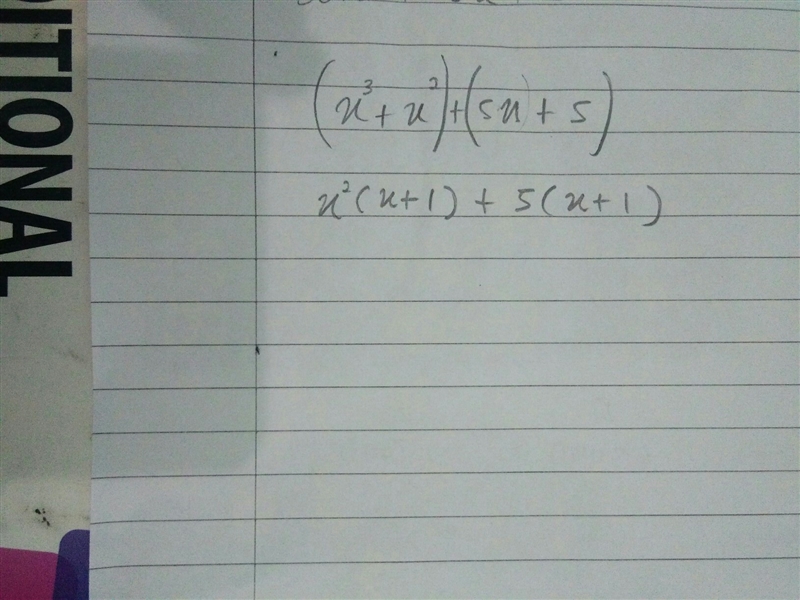 DITIONAL
(x³+x²)+(5x+5)
x²(x+1) + 5(x+1)